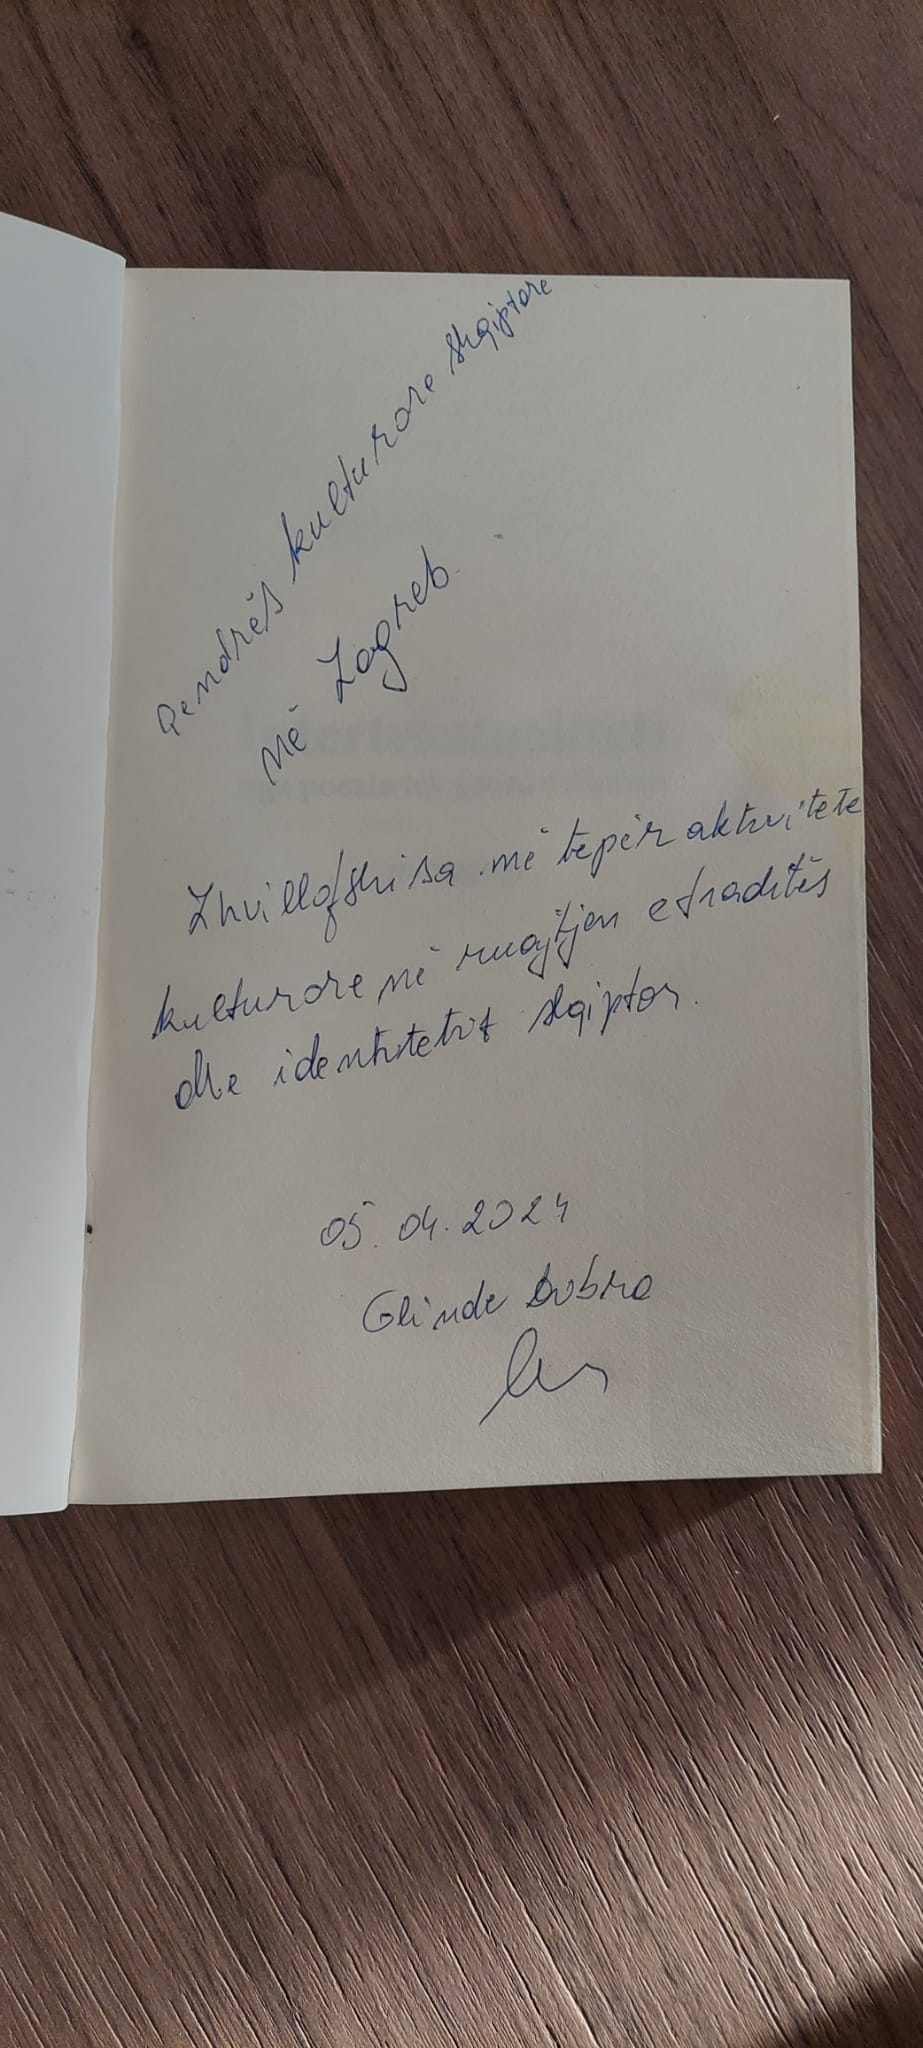 Qendrës kulturore shqiptare
në Zagreb.
Zhvillofshi sa më tepër aktivitete
kulturore në ruajtjen e traditës
dhe identitetit shqiptar.
05.04.2024
Glinde Dobra